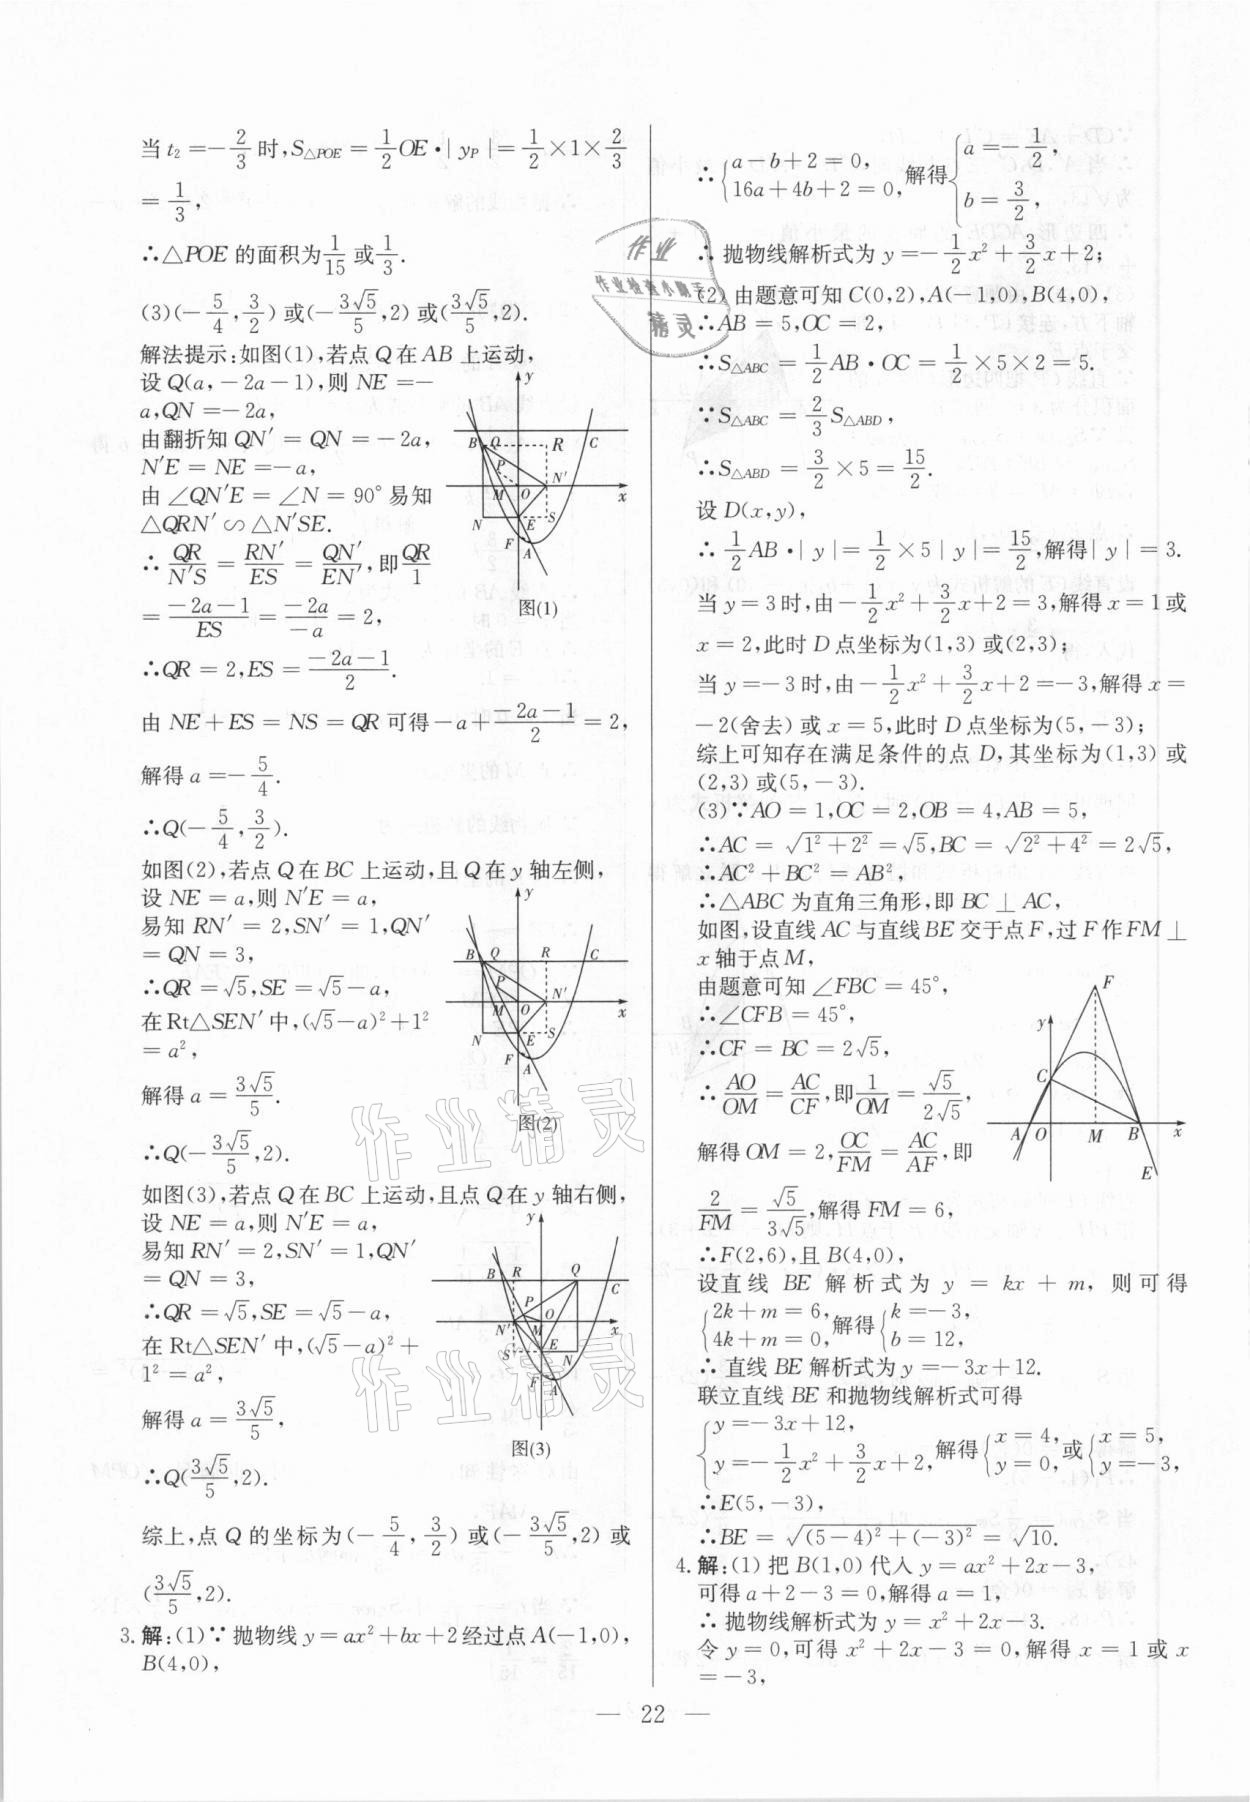 当 t₂=-2/3 时,S△POE=1/2OE·|yP|=1/2×1×2/3
=1/3,
∴△POE 的面积为1/15 或1/3.
(3)(-5/4,3/2) 或(-3√5/5,2) 或(3√5/5,2).
解法提示:如图(1),若点 Q 在 AB 上运动,
设 Q(a,-2a-1),则 NE=-
a,QN=-2a,
由翻折知 QN′=QN=-2a,
N′E=NE=-a,
由 ∠QN′E=∠N=90°易知
△QRN′∽△N′SE.
∴QR/N′S=RN′/ES=QN′/EN′,即QR/1
=-2a-1/ES=-2a/-a=2,
∴QR=2,ES=-2a-1/2.
由 NE+ES=NS=QR 可得-a+-2a-1/2=2,
解得 a=-5/4.
∴Q(-5/4,3/2).
y
B Q R C
P N′
M O x
N E S
F A
图(1)
如图(2),若点 Q 在 BC 上运动,且 Q 在 y 轴左侧,
设 NE=a,则 N′E=a,
易知 RN′=2,SN′=1,QN′
=QN=3,
∴QR=√5,SE=√5-a,
在 Rt△SEN′中,(√5-a)²+1²
=a²,
解得 a=3√5/5.
∴Q(-3√5/5,2).
y
B Q R C
P N′
M O x
N E S
F A
图(2)
如图(3),若点 Q 在 BC 上运动,且点 Q 在 y 轴右侧,
设 NE=a,则 N′E=a,
易知 RN′=2,SN′=1,QN′
=QN=3,
∴QR=√5,SE=√5-a,
在 Rt△SEN′中,(√5-a)²+
1²=a²,
解得 a=3√5/5,
∴Q(3√5/5,2).
y
B R Q C
P O
N′ M x
S E N
F A
图(3)
综上,点 Q 的坐标为(-5/4,3/2) 或(-3√5/5,2) 或
(3√5/5,2).
3.解:(1)∵抛物线 y=ax²+bx+2经过点A(-1,0),
B(4,0),
∴{a-b+2=0, 16a+4b+2=0,解得{a=-1/2, b=3/2,
∴抛物线解析式为 y=-1/2x²+3/2x+2;
(2) 由题意可知 C(0,2),A(-1,0),B(4,0),
∴AB=5,OC=2,
∴S△ABC=1/2AB·OC=1/2×5×2=5.
∵S△ABC=2/3S△ABD,
∴S△ABD=3/2×5=15/2.
设 D(x,y),
∴1/2AB·|y|=1/2×5|y|=15/2,解得|y|=3.
当 y=3时,由-1/2x²+3/2x+2=3,解得 x=1或
x=2,此时 D 点坐标为(1,3) 或(2,3);
当 y=-3时,由-1/2x²+3/2x+2=-3,解得 x=
-2(舍去) 或 x=5,此时 D 点坐标为(5,-3);
综上可知存在满足条件的点 D,其坐标为(1,3) 或
(2,3) 或(5,-3).
(3)∵AO=1,OC=2,OB=4,AB=5,
∴AC=√1²+2²=√5,BC=√2²+4²=2√5,
∴AC²+BC²=AB²,
∴△ABC 为直角三角形,即 BC⊥AC,
如图,设直线AC与直线BE交于点F,过F作FM⊥
x 轴于点M,
由题意可知 ∠FBC=45°,
∴∠CFB=45°,
∴CF=BC=2√5,
∴AO/OM=AC/CF,即1/OM=√5/2√5,
解得 OM=2,OC/FM=AC/AF,即
2/FM=√5/3√5,解得 FM=6,
F
y
C
A O M B x
E
∴F(2,6),且 B(4,0),
设直线 BE 解析式为 y=kx+m,则可得
{2k+m=6, 4k+m=0,解得{k=-3, b=12,
∴直线 BE 解析式为 y=-3x+12.
联立直线 BE 和抛物线解析式可得
{y=-3x+12, y=-1/2x²+3/2x+2,解得{x=4, y=0,或{x=5, y=-3,
∴E(5,-3),
∴BE=√(5-4)²+(-3)²=√10.
4.解:(1) 把 B(1,0) 代入 y=ax²+2x-3,
可得 a+2-3=0,解得 a=1,
∴抛物线解析式为 y=x²+2x-3.
令 y=0,可得 x²+2x-3=0,解得 x=1 或 x
=-3,
— 22 —
作业
作业检查小助手
精灵
作业精灵
作业精灵